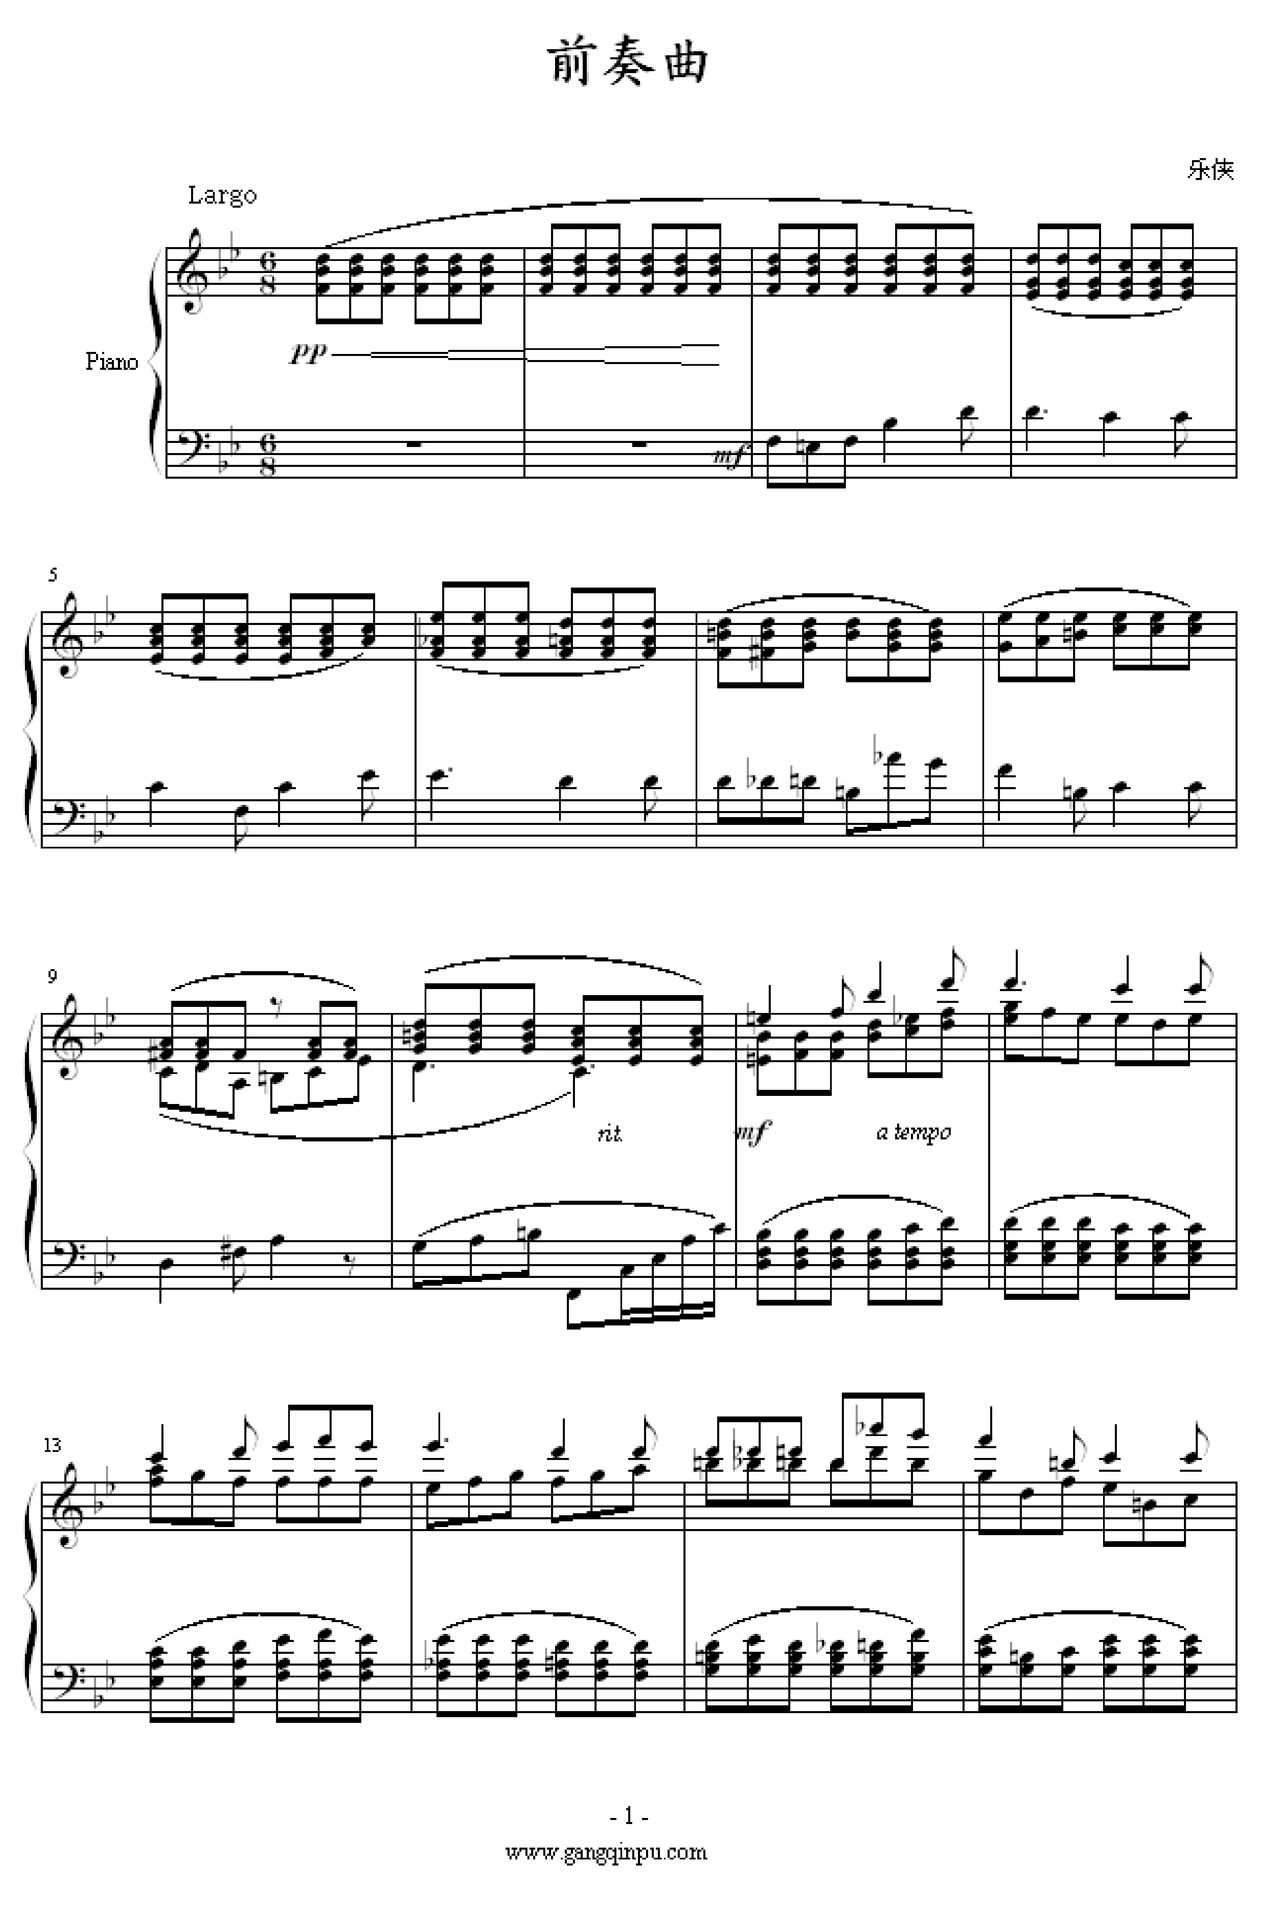 前奏曲
乐侠
Largo
6
8
pp
Piano
6
8
mf
5
9
rit.
mf
a tempo
13
- 1 -
www.gangqinpu.com